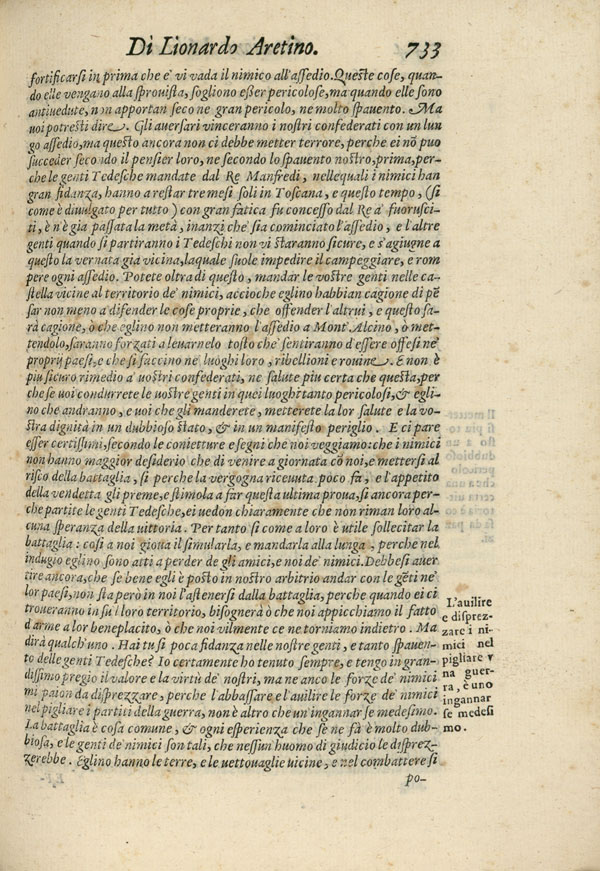 Di Lionardo Aretino. 733
fortificarsi in prima che e' vi vada il nimico all'assedio. Queste cose, quan-
do elle vengano alla sprouista, sogliono eßer pericolose, ma quando elle sono
antiuedute, non apportan seco ne gran pericolo, ne molto spauento. Ma
uoi potresti dire. Gli auersari vinceranno i nostri confederati con un lun
go assedio, ma questo ancora non ci debbe metter terrore, perche ei nō può
succeder secondo il pensier loro, ne secondo lo spauento nostro, prima, per-
che le genti Tedesche mandate dal Re Manfredi, nelle quali i nimici han
gran fidanza, hanno a restar tre mesi soli in Toscana, e questo tempo, (si
come è diuulgato per tutto) con gran fatica fu concesso dal Re a' fuorusci-
ti, è n'è gia passata la metà, inanzi che sia cominciato l'assedio, e l'altre
genti quando si partiranno i Tedeschi non vi staranno sicure, e s'agiugne a
questo la vernata gia vicina, laquale suole impedire il campeggiare, e rom
pere ogni assedio. Potete oltra di questo, mandar le vostre genti nelle ca-
stella vicine al territorio de' nimici, accioche eglino habbian cagione di pē
sar non meno a difender le cose proprie, che offender l'altrui, e questo sa-
rà cagione, ò che eglino non metteranno l'assedio a Mont' Alcino, ò met-
tendolo, saranno forzati a leuarnelo tosto che sentiranno d'essere offesi ne'
proprij paesi, e che si faccino ne' luoghi loro, ribellioni e rouine. E non è
piu sicuro rimedio a' uostri confederati, ne salute piu certa che questa, per
che se uoi condurrete le uostre genti in quei luoghi tanto pericolosi, & egli-
no che andranno, e uoi che gli manderete, metterete la lor salute e la vo-
stra dignità in un dubbioso stato, & in un manifesto periglio. E ci pare
esser certissimi, secondo le conietture e segni che noi veggiamo: che i nimici
non hanno maggior desiderio che di venire a giornata cō noi, e mettersi al
risco della battaglia, si perche la vergogna riceuuta poco fa, e l'appetito
della vendetta gli preme, e stimola a far questa ultima proua, si ancora per-
che partite le genti Tedesche, ei uedon chiaramente che non riman loro al-
cuna speranza della uittoria. Per tanto si come a loro è utile sollecitar la
battaglia: cosi a noi gioua il simularla, e mandarla alla lunga, perche nel
indugio eglino sono atti a perder de gli amici, e noi de' nimici. Debbesi auer
tire ancora, che se bene egli è posto in nostro arbitrio andar con le gēti ne'
lor paesi, non sta però in noi l'astenersi dalla battaglia, perche quando ei ci
troueranno in su'l loro territorio, bisognerà ò che noi appicchiamo il fatto
d'arme a lor beneplacito, ò che noi vilmente ce ne torniamo indietro. Ma
dirà qualch'uno. Hai tu sì poca fidanza nelle nostre genti, e tanto spauen-
to delle genti Tedesche? Io certamente ho tenuto sempre, e tengo in gran-
dissimo pregio il valore e la virtù de' nostri, ma ne anco le forze de' nimici
mi paion da disprezzare, perche l'abbassare e l'auilire le forze de' nimici
nel pigliare i partiti della guerra, non è altro che un'ingannar se medesimo.
La battaglia è cosa comune, & ogni esperienza che se ne fà è molto dub-
biosa, e le genti de' nimici son tali, che nessun huomo di giudicio le disprez-
zerebbe. Eglino hanno le terre, e le uettouaglie uicine, e nel combattere si
po-
L'auilire
e disprez-
zare i ni-
mici nel
pigliare v
na guer-
ra, è uno
ingannar
se medesi
mo.